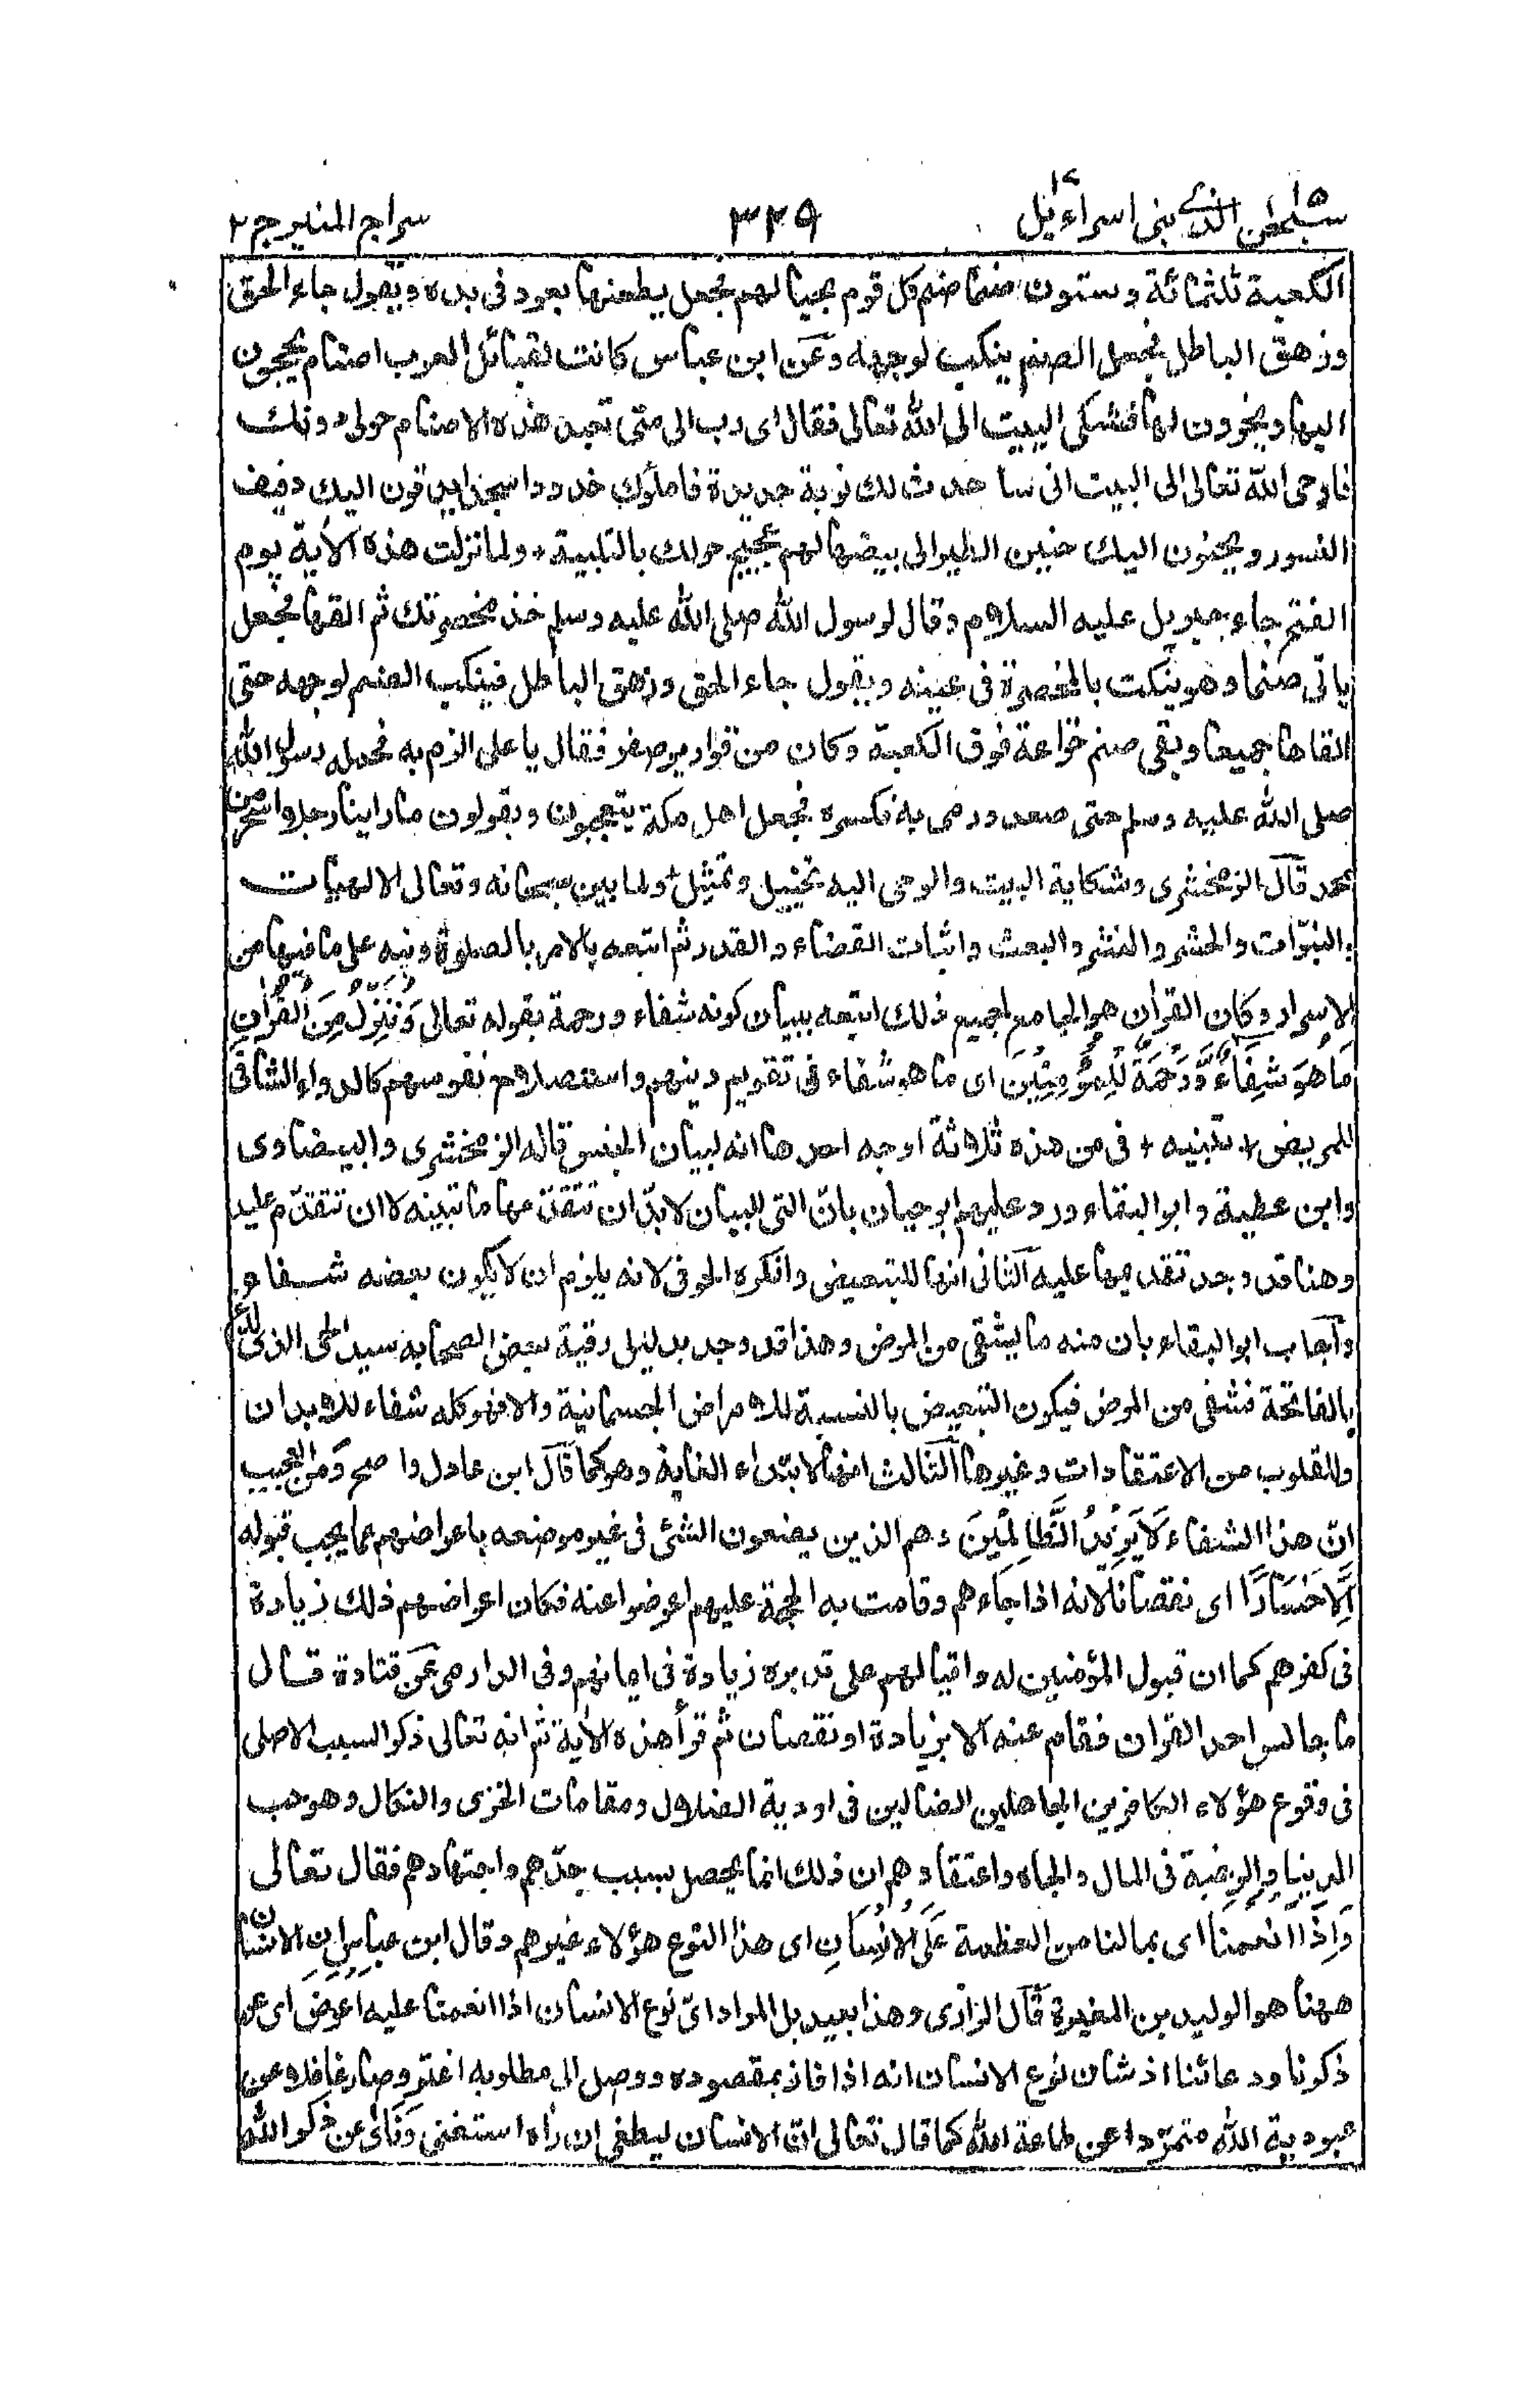 سبحٰن الذی ١٥ بنی اسراءیل ١٧
٣٢٩
سراج المنیر ج ٢
الكعبة ثلثمائة وستون صنما صنم كل قوم بحيا لهم فجعل يطعنها بعود فى يده ويقول جاء الحق
وزهق الباطل فجعل الصنم ينكب لوجهه وعن ابن عباس كانت لقبائل العرب اصنام يحجون
اليها وينحرون لها فشكى البيت الى الله تعالى فقال اى رب الى متى تعبد هذه الاصنام حولى دونك
فاوحى الله تعالى الى البيت انى ساحدث لك نوبة جديدة فاملؤك خدودا سجدا يدفون اليك دفيف
النسور ويحنون اليك حنين الطير الى بيضها لهم عجيج حولك بالتلبية + ولما نزلت هذه الآية يوم
الفتح جاء جبريل عليه السلام وقال لرسول الله صلى الله عليه وسلم خذ مخصرتك ثم القها فجعل
ياتى صنما وهو ينكت بالمخصرة فى عينه ويقول جاء الحق وزهق الباطل فينكب الصنم لوجهه حتى
القاها جميعا وبقى صنم خزاعة فوق الكعبة وكان من قوارير صفر فقال يا على ارم به فحمله رسول الله
صلى الله عليه وسلم حتى صعد ورمى به فكسره فجعل اهل مكة يتعجبون ويقولون ما راينا رجلا اسحر من
محمد قال الزمخشرى وشكاية البيت والوحى اليه تخييل وتمثيل + ولما بين سبحانه وتعالى الالهيات
والنبوّات والحشر والنشر والبعث واثبات القضاء والقدر ثم اتبعه بالامر بالصلوة ونبه على ما فيها من
الاسرار وكان القرآن هو الجامع لجميع ذلك اتبعه ببيان كونه شفاء ورحمة بقوله تعالى وَنُنَزِّلُ مِنَ الْقُرْاٰنِ
مَا هُوَ شِفَاءٌ وَّرَحْمَةٌ لِّلْمُؤْمِنِيْنَ اى ما هو شفاء فى تقويم دينهم واستصلاح نفوسهم كالدواء الشافى
للمريض + تنبيه + فى من هذه ثلاثة اوجه احدها انه لبيان الجنس قاله الزمخشرى والبيضاوى
وابن عطية وابو البقاء ورد عليهم ابو حيان بانّ التى للبيان لابدّ ان تتقدّمها ما تبينه لا ان تتقدّم عليه
وهنا قد وجد تقديمها عليه الثانى انها للتبعيض وانكره الحوفى لانه يلزم ان لا يكون بعضه شفاء
واجاب ابو البقاء بان منه ما يشفى من المرض وهذا قد وجد بدليل رقية بعض الصحابة سيد الحى الذى لدغ
بالفاتحة فشفى من المرض فيكون التبعيض بالنسبة للامراض الجسمانية والا فهو كله شفاء للابدان
وللقلوب من الاعتقادات وغيرها الثالث انها لابتداء الغاية وهو كما قال ابن عادل واضح ومن العجيب
انّ هذا الشفاء لَا يَزِيْدُ الظَّالِمِيْنَ وهم الذين يضعون الشئ فى غير موضعه باعراضهم عما يجب قبوله
اِلَّا خَسَارًا اى نقصانا لانه اذا جاءهم وقامت به الحجة عليهم اعرضوا عنه فكان اعراضهم ذلك زيادة
فى كفرهم كما ان قبول المؤمنين له واقبالهم على تدبره زيادة فى ايمانهم وفى الدارمى عن قتادة قال
ما جالس احد القران فقام عنه الا بزيادة او نقصان ثم قرأ هذه الآية ثم انه تعالى ذكر السبب الاصلى
فى وقوع هؤلاء الكافرين الجاهلين الضالين فى اودية الضلال ومقامات الخزى والنكال وهو حب
الدينا والرغبة فى المال والجاه واعتقادهم ان ذلك انما يحصل بسبب جدّهم واجتهادهم فقال تعالى
وَاِذَا اَنْعَمْنَا اى بما لنا من العظمة عَلَى الْاِنْسَانِ اى هذا النوع هؤلاء وغيرهم وقال ابن عباس ان الانسان
ههنا هو الوليد بن المغيرة قال الرازى وهذا بعيد بل المراد انّ نوع الانسان اذا انعمنا عليه اَعْرَضَ اى عن
ذكرنا ودعائنا اذ شان نوع الانسان انه اذا فاز بمقصوده ووصل الى مطلوبه اغتر وصار غافلا عن
عبودية الله متمرّدا عن طاعة الله كما قال تعالى انّ الانسان ليطغى ان رأه استغنى وَنَاٰى عن ذكر الله